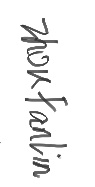 Zhok farlin